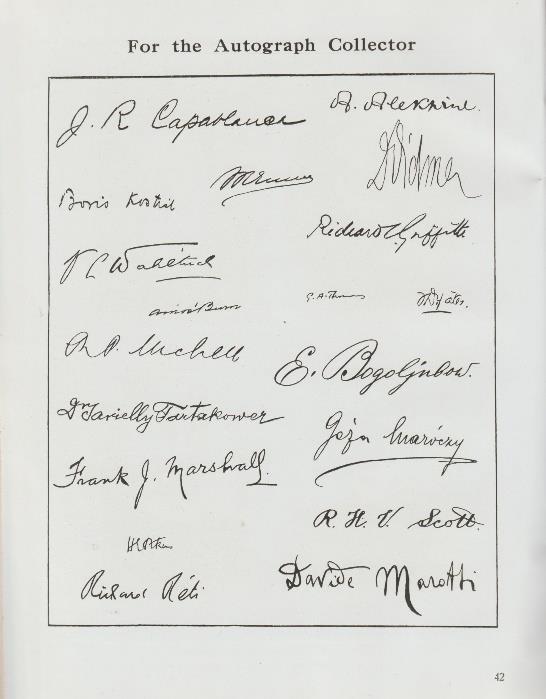 For the Autograph Collector
J. R Capablanca
A. Alekhine.
M Euwe
D Vidmar
Boris Kostić
Richard C Griffith
V L Wahltuch
Amos Burn
G. A. Thomas
F D Yates.
R. P. Michell
E. Bogoljubow.
Dr Savielly Tartakower
Géza Maróczy
Frank J. Marshall
R. H. V. Scott.
H E Atkins
Richard Réti
Davide Marotti
42